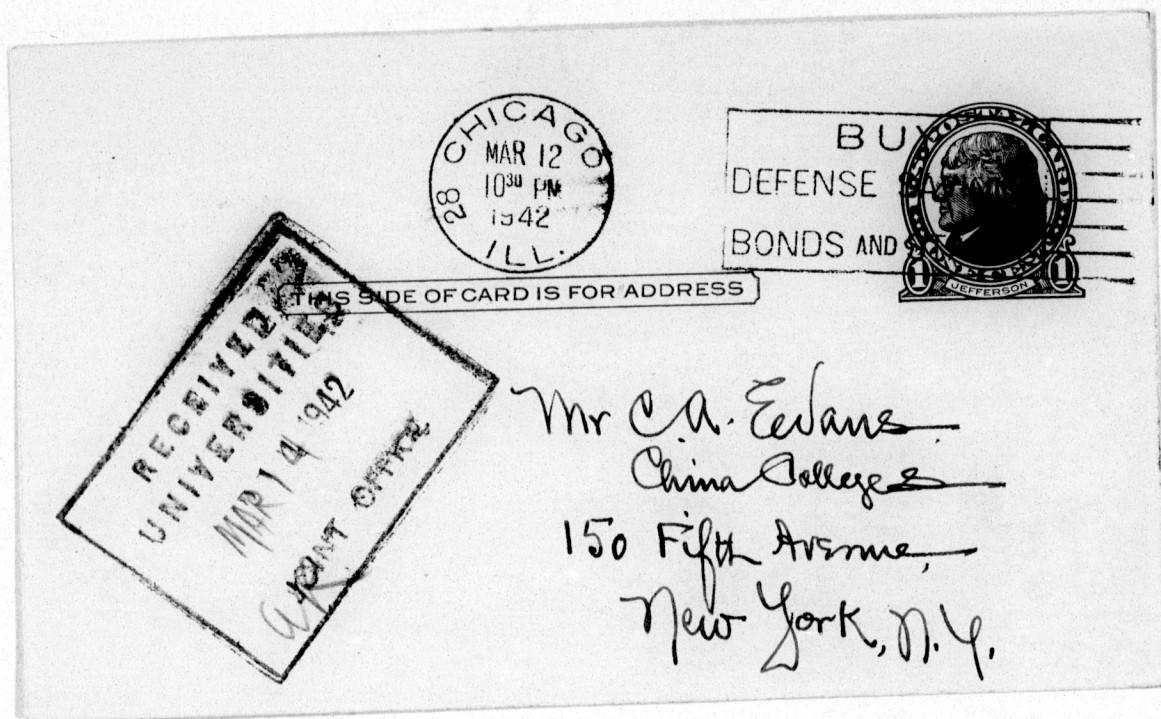 28 CHICAGO ILL.
MAR 12
10 30 PM
1942
BUY
DEFENSE
BONDS AND
U.S. POSTAL CARD
1 JEFFERSON 1
THIS SIDE OF CARD IS FOR ADDRESS
RECEIVED
UNIVERSITIES
MAR 14 1942
JOINT OFFICE
Mr C.A. Evans
China Colleges
150 Fifth Avenue,
New York, N.Y.